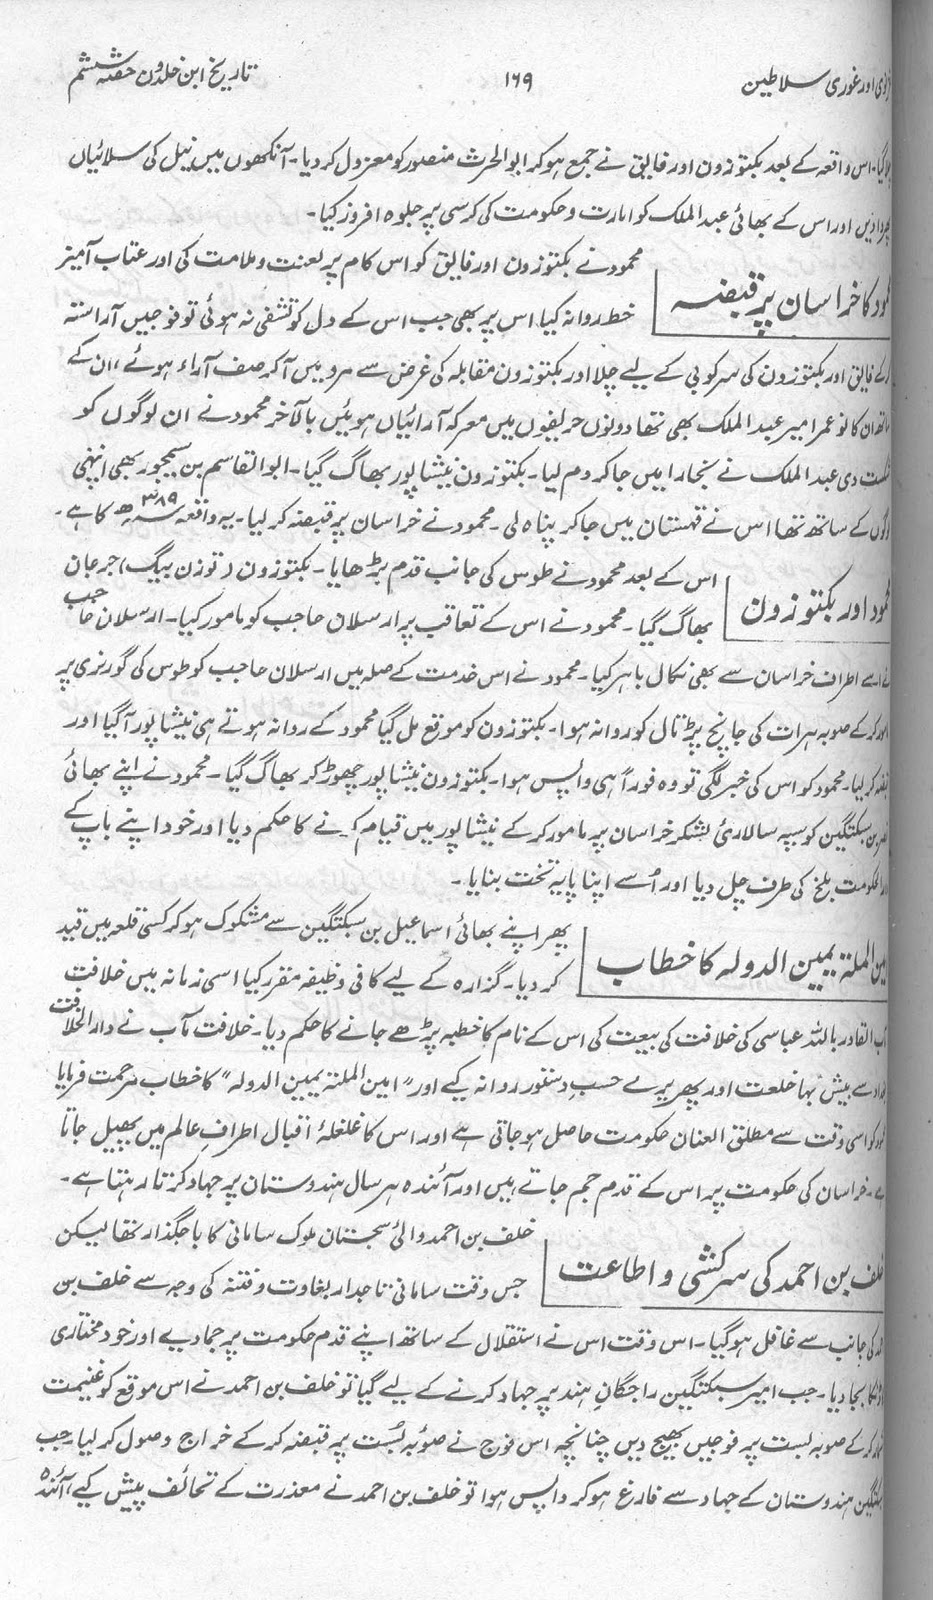 اور غوری سلاطین ۱۶۹ تاریخ ابن خلدون حصّہ ششم
گیا۔ اس واقعہ کے بعد بکتوزون اور فایق نے جمع ہو کر ابوالحرث منصور کو معزول کر دیا۔ آنکھوں میں نیل کی سلائیاں
دیں اور اس کے بھائی عبد الملک کو امارت و حکومت کی کرسی پر جلوہ افروز کیا۔
کا خراسان پر قبضہ
محمود نے بکتوزون اور فایق کو اس کام پر لعنت و ملامت کی اور عتاب آمیز
خط روانہ کیا، اس پر بھی جب اس کے دل کو تشفی نہ ہوئی تو فوجیں آراستہ
کے فایق اور بکتوزون کی سرکوبی کے لیے چلا اور بکتوزون مقابلہ کی غرض سے مرو میں آ کر صف آراء ہوئے، ان کے
ان کا نو عمر امیر عبد الملک بھی تھا دونوں حریفوں میں معرکہ آرائیاں ہوئیں بالآخر محمود نے ان لوگوں کو
دی عبد الملک نے بخارا میں جا کر دم لیا۔ بکتوزون نیشاپور بھاگ گیا۔ ابوالقاسم بن سیمجور بھی انہی
کے ساتھ تھا اس نے قہستان میں جا کر پناہ لی۔ محمود نے خراسان پر قبضہ کر لیا۔ یہ واقعہ ۳۸۹ھ کا ہے۔
اور بکتوزون
اس کے بعد محمود نے طوس کی جانب قدم بڑھایا۔ بکتوزون (توزن بیگ) جرجان
بھاگ گیا۔ محمود نے اس کے تعاقب پر ارسلان حاجب کو مامور کیا۔ ارسلان حاجب
اسے اطراف خراسان سے بھی نکال باہر کیا۔ محمود نے اس خدمت کے صلہ میں ارسلان حاجب کو طوس کی گورنری پر
کر کے صوبہ ہرات کی جانچ پڑتال کو روانہ ہوا۔ بکتوزون کو موقع مل گیا محمود کے روانہ ہوتے ہی نیشاپور آ گیا اور
کر لیا۔ محمود کو اس کی خبر لگی تو وہ فوراً ہی واپس ہوا۔ بکتوزون نیشاپور چھوڑ کر بھاگ گیا۔ محمود نے اپنے بھائی
بن سبکتگین کو سپہ سالارئ لشکر خراسان پر مامور کر کے نیشاپور میں قیام کرنے کا حکم دیا اور خود اپنے باپ کے
بلخ کی طرف چل دیا اور اُسے اپنا پایہ تخت بنایا۔
الملۃ یمین الدولہ کا خطاب
پھر اپنے بھائی اسماعیل بن سبکتگین سے مشکوک ہو کر کسی قلعہ میں قید
کر دیا۔ گزارہ کے لیے کافی وظیفہ مقرر کیا اسی زمانہ میں خلافت
القادر باللہ عباسی کی خلافت کی بیعت کی اس کے نام کا خطبہ پڑھے جانے کا حکم دیا۔ خلافت مآب نے دار الخلافت
سے بیش بہا خلعت اور پھریرے حسب دستور روانہ کیے اور "امین الملۃ یمین الدولہ" کا خطاب مرحمت فرمایا
کو اسی وقت سے مطلق العنان حکومت حاصل ہو جاتی ہے اور اس کا غلغلۂ اقبال اطراف عالم میں پھیل جاتا
خراسان کی حکومت پر اس کے قدم جم جاتے ہیں اور آئندہ ہر سال ہندوستان پر جہاد کرتا رہتا ہے۔
بن احمد کی سرکشی و اطاعت
خلف بن احمد والئ سجستان ملوک سامانی کا باجگذار تھا لیکن
جس وقت سامانی تاجدار بغاوت و فتنہ کی وجہ سے خلف بن
کی جانب سے غافل ہو گیا۔ اس وقت اس نے استقلال کے ساتھ اپنے قدم حکومت پر جما دیے اور خود مختاری
بجا دیا۔ جب امیر سبکتگین راجگان ہند پر جہاد کرنے کے لیے گیا تو خلف بن احمد نے اس موقع کو غنیمت
کر کے صوبہ بست پر فوجیں بھیج دیں چنانچہ اس فوج نے صوبۂ بُست پر قبضہ کر کے خراج وصول کر لیا، جب
سبکتگین ہندوستان کے جہاد سے فارغ ہو کر واپس ہوا تو خلف بن احمد نے معذرت کے تحائف پیش کیے، آئندہ